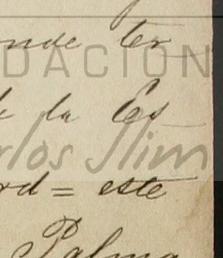 onde ter
DACIÓN
de la Es
arlos Slim
ord= este
Palma